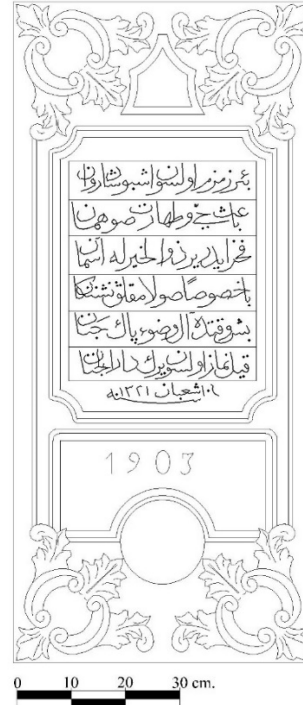 بئر زمزم اولسون اشبو شادروان
باعث و طهارت صو همان
فخر ايدر ير ذو الخيرله اسمان
باخصوصاً صولامقلق تشنكان
بشوقتده آل وضوء پاك جنان
قيل نماز اولسون يرك دار الجنان
شعبان ١٢٢١ سنه
1903
0 10 20 30 cm.